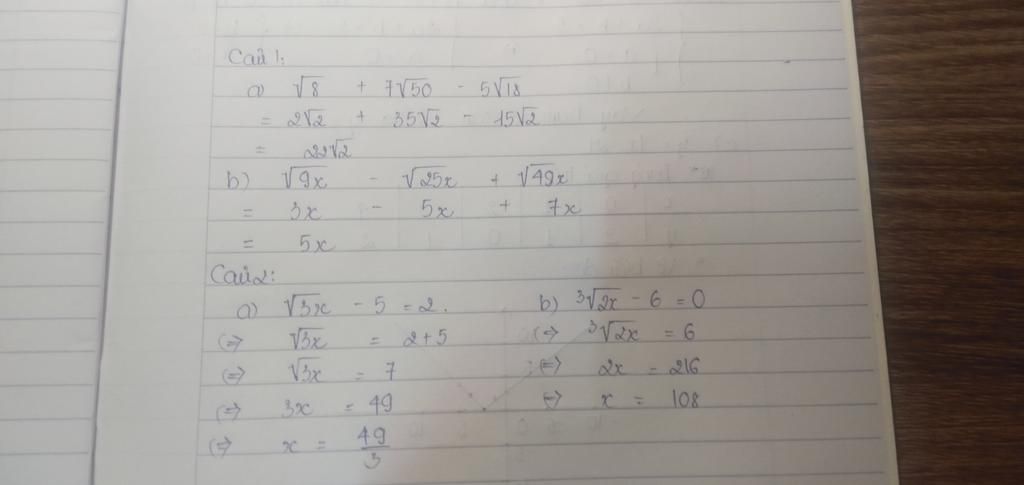 Câu 1:
a) √8 + 7√50 - 5√18
= 2√2 + 35√2 - 15√2
= 22√2
b) √9x - √25x + √49x
= 3x - 5x + 7x
= 5x
Câu 2:
a) √3x - 5 = 2.
(=) √3x = 2+5
(=) √3x = 7
(=) 3x = 49
(=) x = 49/3
b) ³√2x - 6 = 0
(=) ³√2x = 6
(=) 2x = 216
(=) x = 108